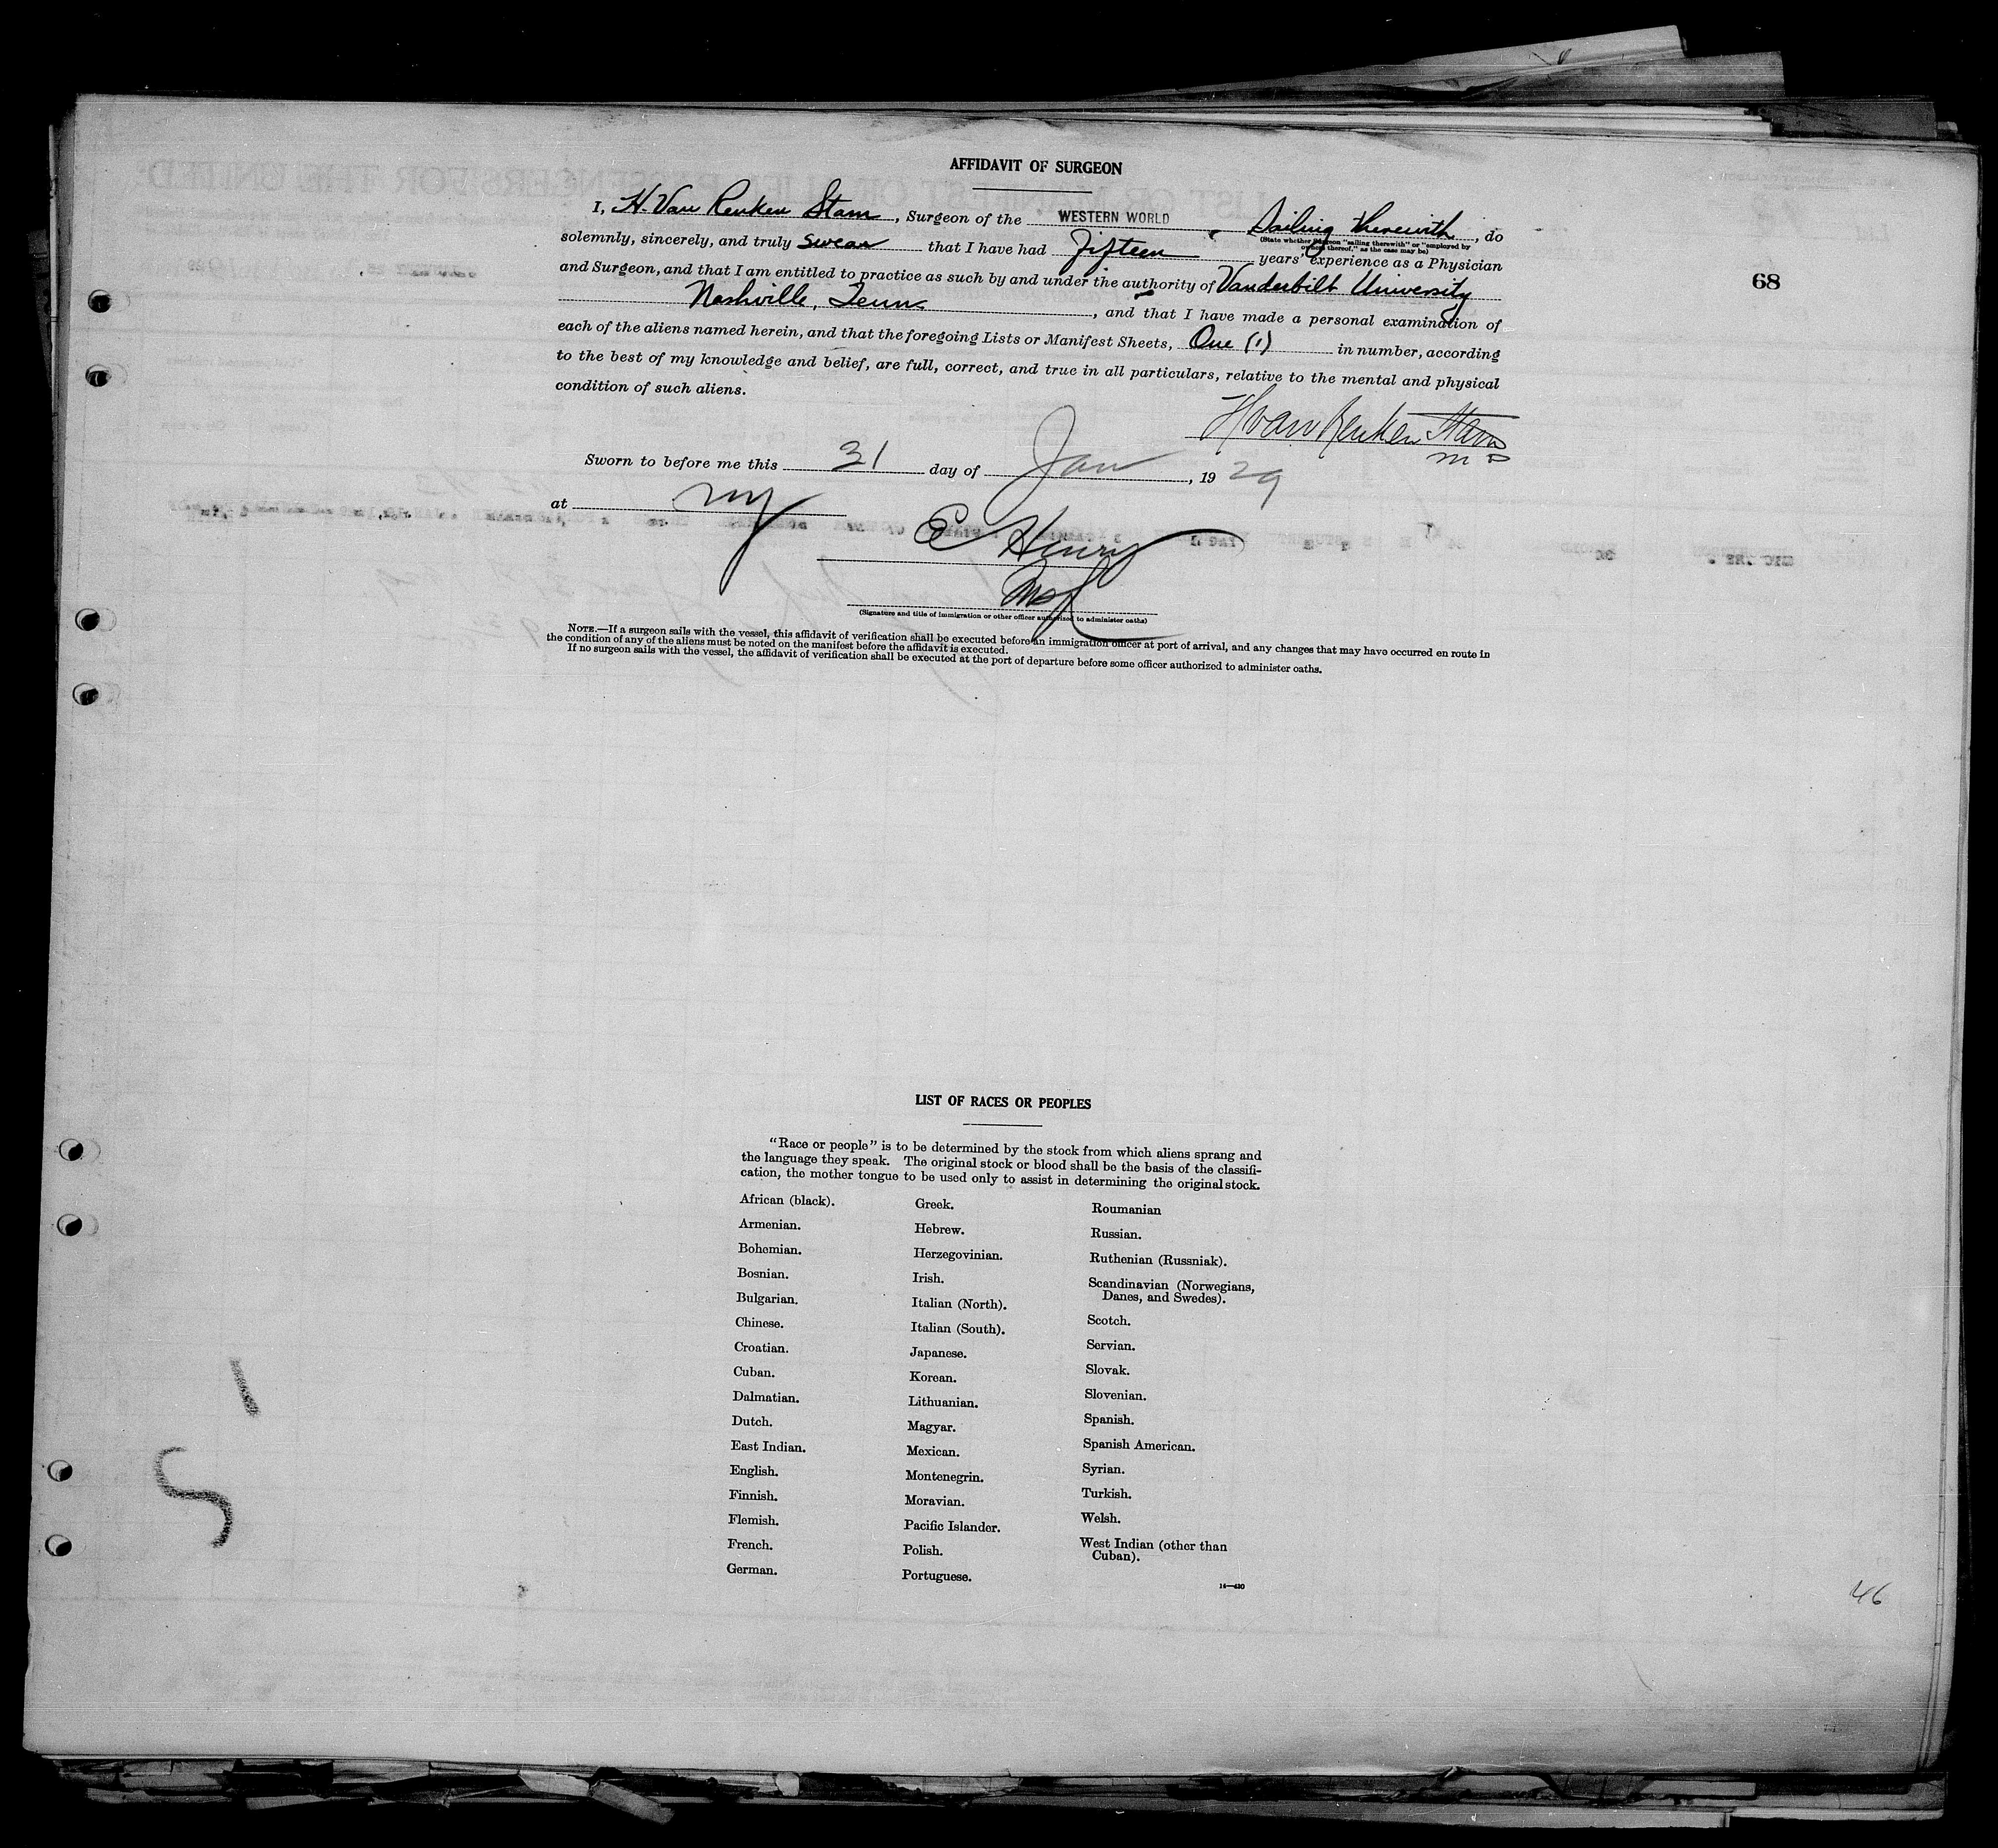 AFFIDAVIT OF SURGEON
I, H. Van Reuken Stam, Surgeon of the WESTERN WORLD, Sailing therewith, do
(State whether Surgeon "sailing therewith" or "employed by
owners thereof," as the case may be)
solemnly, sincerely, and truly swear that I have had Fifteen years' experience as a Physician
and Surgeon, and that I am entitled to practice as such by and under the authority of Vanderbilt University
Nashville, Tenn., and that I have made a personal examination of
each of the aliens named herein, and that the foregoing Lists or Manifest Sheets, One (1) in number, according
to the best of my knowledge and belief, are full, correct, and true in all particulars, relative to the mental and physical
condition of such aliens.
H van Reuken Stam
M D
Sworn to before me this 31 day of Jan, 1929
at NY
E Henry
(Signature and title of immigration or other officer authorized to administer oaths)
NOTE.—If a surgeon sails with the vessel, this affidavit of verification shall be executed before an immigration officer at port of arrival, and any changes that may have occurred en route in
the condition of any of the aliens must be noted on the manifest before the affidavit is executed.
If no surgeon sails with the vessel, the affidavit of verification shall be executed at the port of departure before some officer authorized to administer oaths.
68
LIST OF RACES OR PEOPLES
"Race or people" is to be determined by the stock from which aliens sprang and
the language they speak. The original stock or blood shall be the basis of the classifi-
cation, the mother tongue to be used only to assist in determining the original stock.
African (black).
Armenian.
Bohemian.
Bosnian.
Bulgarian.
Chinese.
Croatian.
Cuban.
Dalmatian.
Dutch.
East Indian.
English.
Finnish.
Flemish.
French.
German.
Greek.
Hebrew.
Herzegovinian.
Irish.
Italian (North).
Italian (South).
Japanese.
Korean.
Lithuanian.
Magyar.
Mexican.
Montenegrin.
Moravian.
Pacific Islander.
Polish.
Portuguese.
Roumanian
Russian.
Ruthenian (Russniak).
Scandinavian (Norwegians,
Danes, and Swedes).
Scotch.
Servian.
Slovak.
Slovenian.
Spanish.
Spanish American.
Syrian.
Turkish.
Welsh.
West Indian (other than
Cuban).
14—430
46